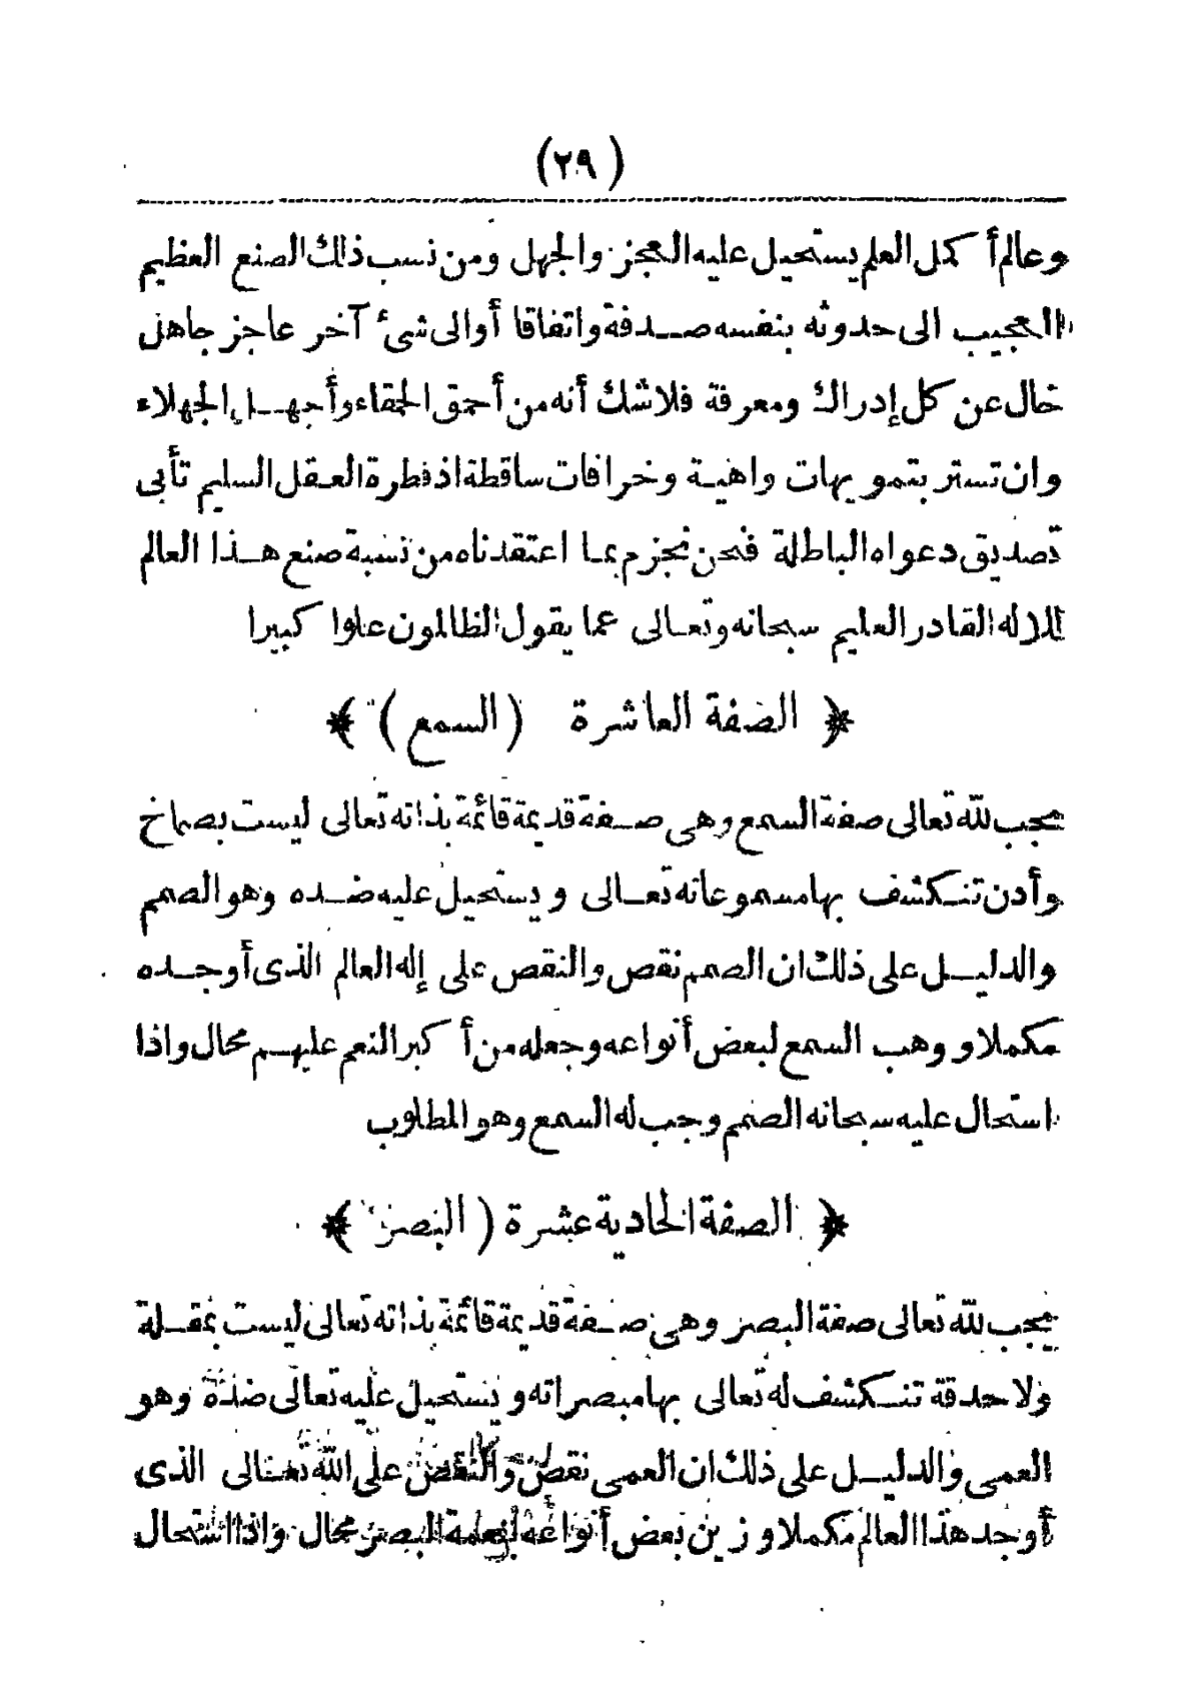 (٢٩)
وعالم أكمل العلم يستحيل عليه العجز والجهل ومن نسب ذلك الصنع العظيم
العجيب الى حدوثه بنفسه صدفة واتفاقا أو الى شئ آخر عاجز جاهل
خال عن كل إدراك ومعرفة فلا شك أنه من أحمق الحمقاء وأجهل الجهلاء
وان تستر بتمويهات واهية وخرافات ساقطة اذ فطرة العقل السليم تأبى
تصديق دعواه الباطلة فنحن نجزم بما اعتقدناه من نسبة صنع هذا العالم
للاله القادر العليم سبحانه وتعالى عما يقول الظالمون علوا كبيرا
﴿ الصفة العاشرة (السمع) ﴾
يجب لله تعالى صفة السمع وهى صفة قديمة قائمة بذاته تعالى ليست بصماخ
وأذن تنكشف بها مسموعاته تعالى ويستحيل عليه ضده وهو الصمم
والدليل على ذلك ان الصمم نقص والنقص على إله العالم الذى أوجده
مكملا ووهب السمع لبعض أنواعه وجعله من أكبر النعم عليهم محال واذا
استحال عليه سبحانه الصمم وجب له السمع وهو المطلوب
﴿ الصفة الحادية عشرة (البصر) ﴾
يجب لله تعالى صفة البصر وهى صفة قديمة قائمة بذاته تعالى ليست بمقلة
ولا حدقة تنكشف له تعالى بها مبصراته ويستحيل عليه تعالى ضده وهو
العمى والدليل على ذلك ان العمى نقص والنقص على الله تعالى الذى
أوجد هذا العالم مكملا وزين بعض أنواعه بنعمة البصر محال واذا استحال